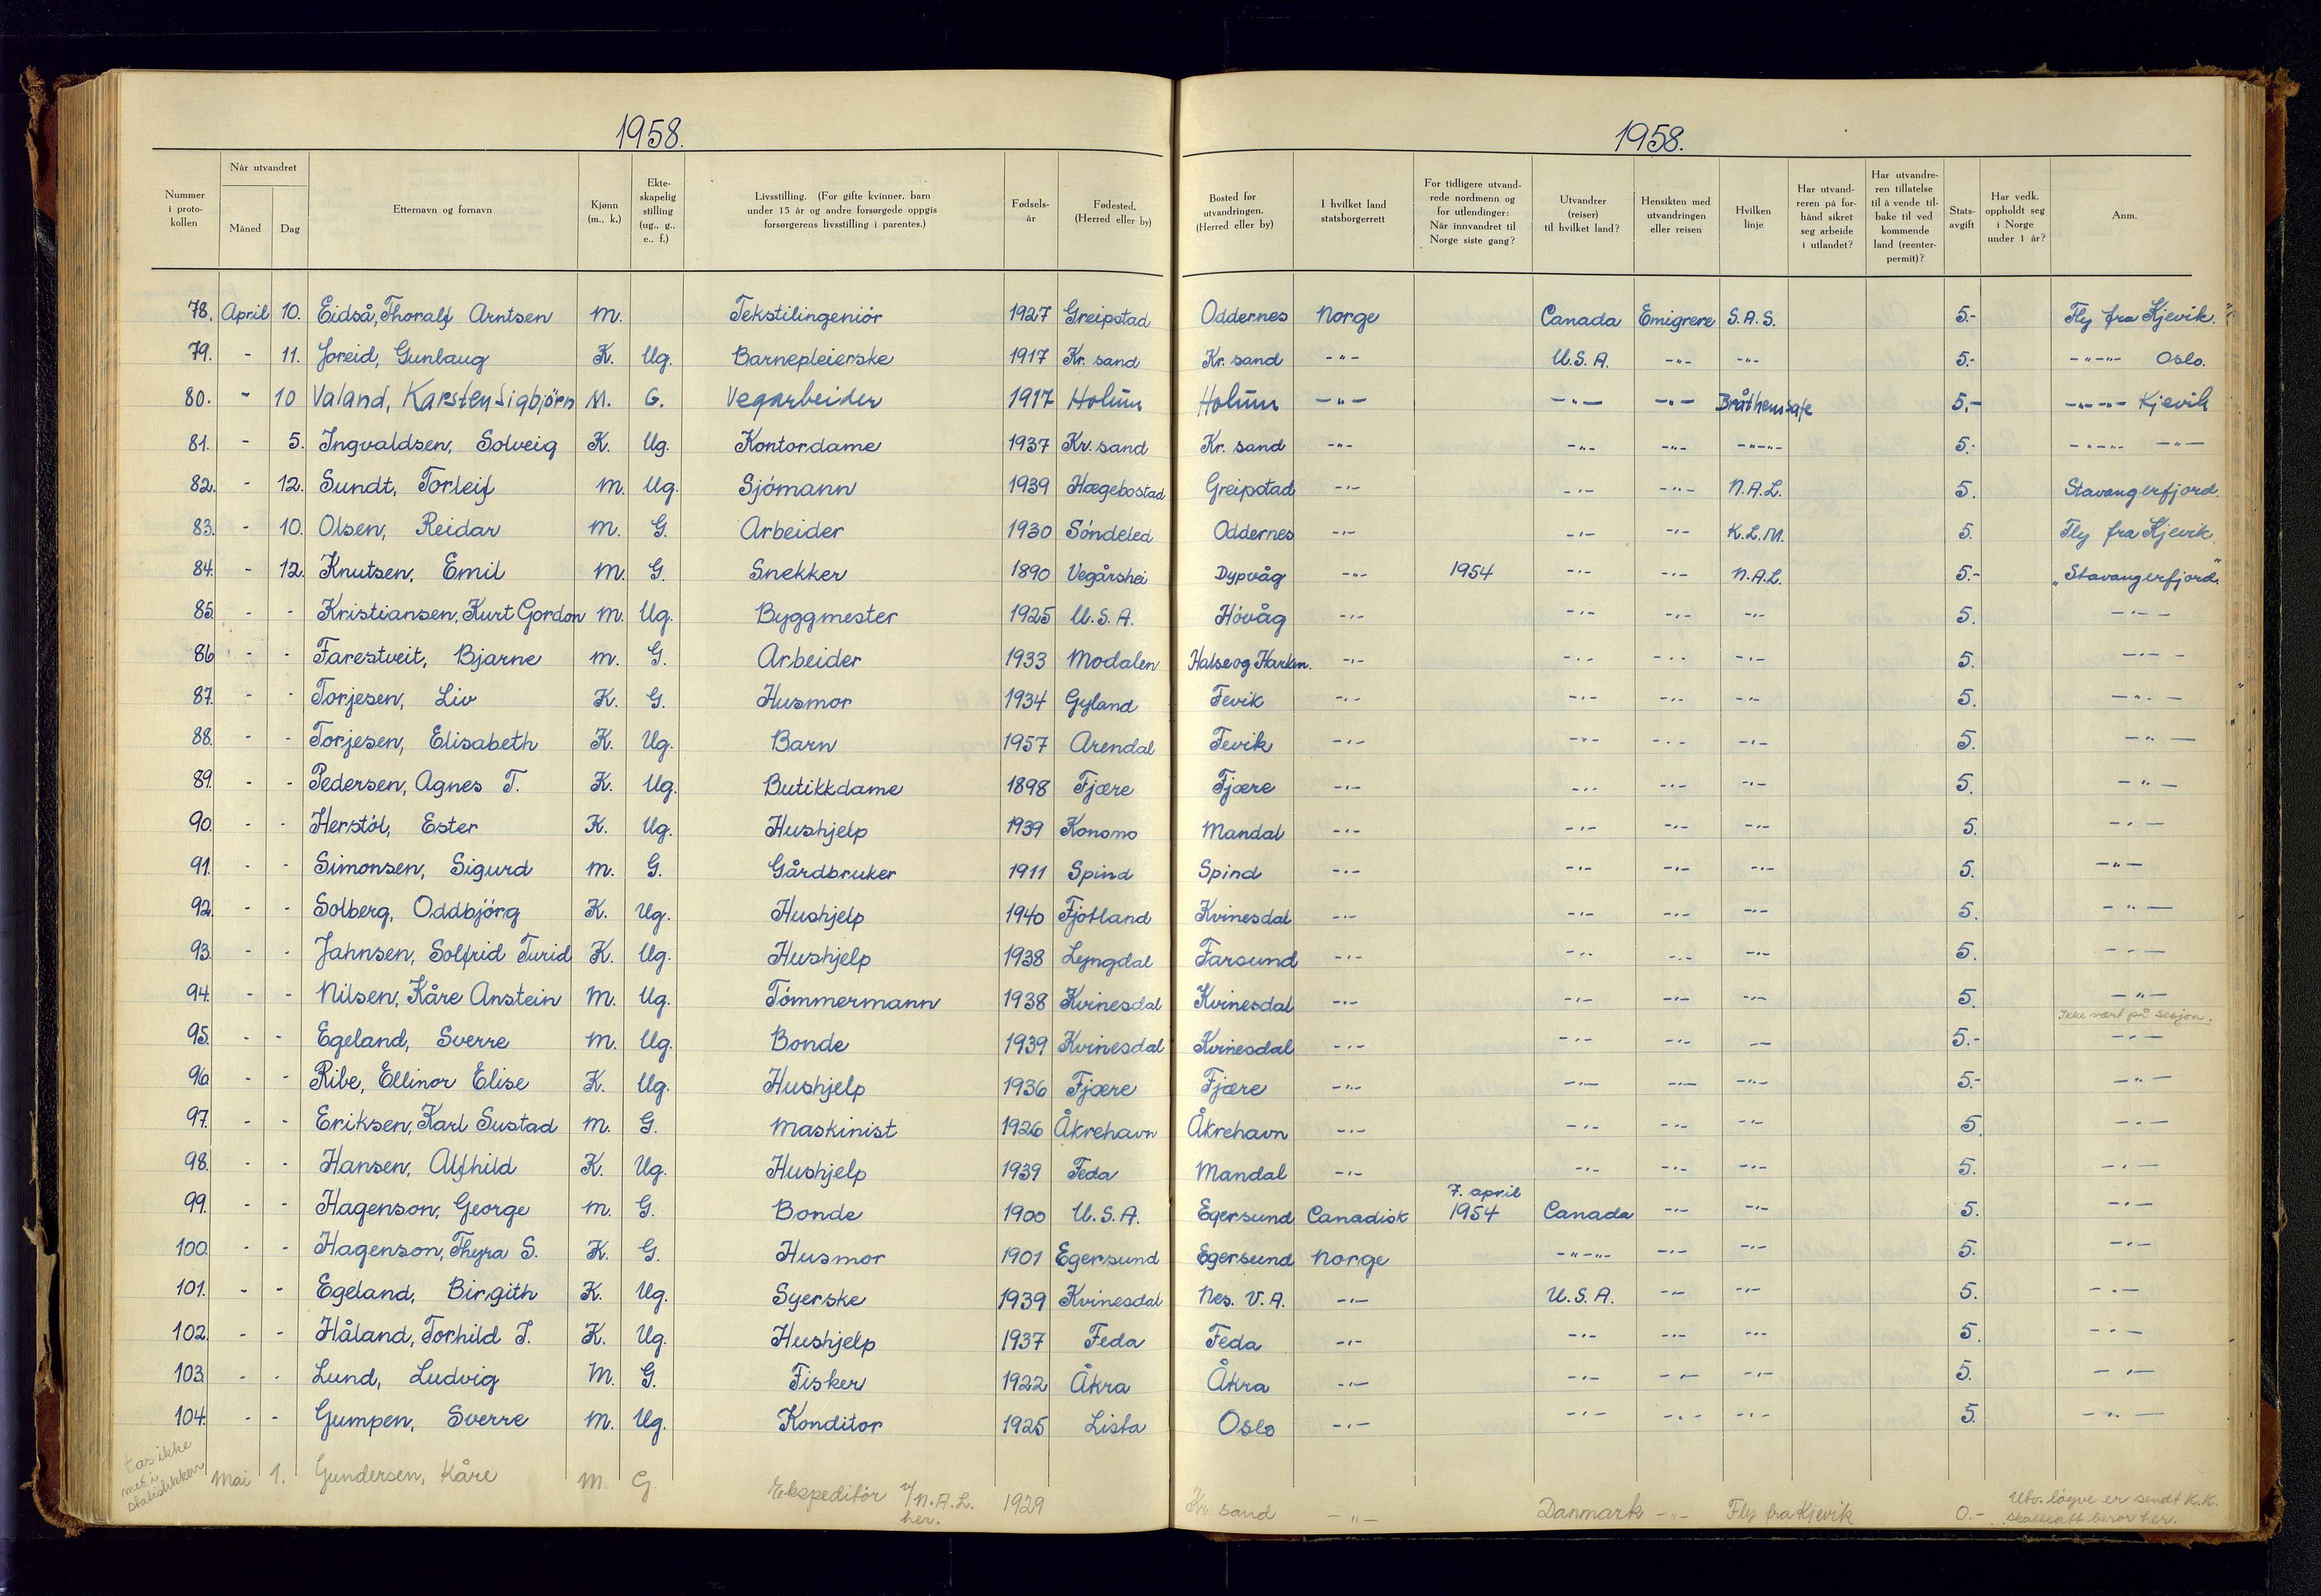 1958.
1958.
Nummer i proto-kollen | Når utvandret Måned Dag | Etternavn og fornavn | Kjønn (m., k.) | Ekte-skapelig stilling (ug., g., e., f.) | Livsstilling. (For gifte kvinner, barn under 15 år og andre forsørgede oppgis forsørgerens livsstilling i parentes.) | Fødsels-år | Fødested. (Herred eller by) | Bosted før utvandringen. (Herred eller by) | I hvilket land statsborgerrett | For tidligere utvand-rede nordmenn og for utlendinger: Når innvandret til Norge siste gang? | Utvandrer (reiser) til hvilket land? | Hensikten med utvandringen eller reisen | Hvilken linje | Har utvand-reren på for-hånd sikret seg arbeide i utlandet? | Har utvandre-ren tillatelse til å vende til-bake til ved kommende land (reenter-permit)? | Stats-avgift | Har vedk. oppholdt seg i Norge under 1 år? | Anm.
78. April 10. Eidså, Thoralf Arntsen M. Tekstilingeniör 1927 Greipstad Oddernes Norge Canada Emigrere S.A.S. 5.- Fly fra Kjevik.
79. - 11. Joreid, Gunlaug K. Ug. Barnepleierske 1917 Kr. sand Kr. sand -"- U.S.A. -"- -"- 5.- -"-"- Oslo.
80. - 10 Valand, Karsten Sigbjørn M. G. Vegarbeider 1917 Holum Holum -"- -"- -"- Bråthensafe 5,- -"-"- Kjevik
81. - 5. Ingvaldsen, Solveig K. Ug. Kontordame 1937 Kr. sand Kr. sand -"- -"- -"- -"-"- 5.- -"-"- -"-
82. - 12. Sundt, Torleif M. Ug. Sjömann 1939 Hægebostad Greipstad -"- -"- -"- N.A.L. 5. Stavangerfjord.
83. - 10. Olsen, Reidar M. G. Arbeider 1930 Söndeled Oddernes -"- -"- -"- K.L.M. 5. Fly fra Kjevik.
84. - 12. Knutsen, Emil M. G. Snekker 1890 Vegårshei Dypvåg -"- 1954 -"- -"- N.A.L. 5.- "Stavangerfjord."
85. - - Kristiansen, Kurt Gordon M. Ug. Byggmester 1925 U.S.A. Hövåg -"- -"- -"- -"- 5. -"-
86 - - Farestveit, Bjarne M. G. Arbeider 1933 Modalen Halse og Harkm. -"- -"- -"- -"- 5. -"-
87. - - Torjesen, Liv K. G. Husmor 1934 Gyland Fevik -"- -"- -"- -"- 5. -"-
88. - - Torjesen, Elisabeth K. Ug. Barn 1957 Arendal Fevik -"- -"- -"- -"- 5. -"-
89. - - Pedersen, Agnes T. K. Ug. Butikkdame 1898 Fjære Fjære -"- -"- -"- -"- 5. -"-
90. - - Herstöl, Ester K. Ug. Hushjelp 1939 Konsmo Mandal -"- -"- -"- -"- 5. -"-
91. - - Simonsen, Sigurd M. G. Gårdbruker 1911 Spind Spind -"- -"- -"- -"- 5. -"-
92. - - Solberg, Oddbjörg K. Ug. Hushjelp 1940 Fjotland Kvinesdal -"- -"- -"- -"- 5. -"-
93. - - Jahnsen, Solfrid Turid K. Ug. Hushjelp 1938 Lyngdal Farsund -"- -"- -"- -"- 5. -"-
94. - - Nilsen, Kåre Anstein M. Ug. Tömmermann 1938 Kvinesdal Kvinesdal -"- -"- -"- -"- 5. -"-
Ikke vært på sesjon.
95. - - Egeland, Sverre M. Ug. Bonde 1939 Kvinesdal Kvinesdal -"- -"- -"- -"- 5.- -"-
96 - - Ribe, Ellinor Elise K. Ug. Hushjelp 1936 Fjære Fjære -"- -"- -"- -"- 5.- -"-
97. - - Eriksen, Karl Sustad M. G. Maskinist 1926 Åkrehavn Åkrehavn -"- -"- -"- -"- 5. -"-
98. - - Hansen, Alfhild K. Ug. Hushjelp 1939 Feda Mandal -"- -"- -"- -"- 5. -"-
99. - - Hagenson, George M. G. Bonde 1900 U.S.A. Egersund Canadisk 7. april 1954 Canada -"- -"- 5. -"-
100. - - Hagenson, Thyra S. K. G. Husmor 1901 Egersund Egersund Norge -"-"- -"- -"- 5. -"-
101. - - Egeland, Birgith K. Ug. Syerske 1939 Kvinesdal Nes. V.A. -"- U.S.A. -"- -"- 5. -"-
102. - - Håland, Torhild J. K. Ug. Hushjelp 1937 Feda Feda -"- -"- -"- -"- 5. -"-
103. - - Lund, Ludvig M. G. Fisker 1922 Åkra Åkra -"- -"- -"- -"- 5. -"-
104. - - Gumpen, Sverre M. Ug. Konditor 1925 Lista Oslo -"- -"- -"- -"- 5. -"-
tas ikke med i statistikken Mai 1. Gundersen, Kåre M. G. Ekspeditör v/N.A.L. her. 1929 Kr. sand -"- Danmark -"- Fly fra Kjevik 0.- Utv. løyve er sendt K.K. skatteatt beror her.